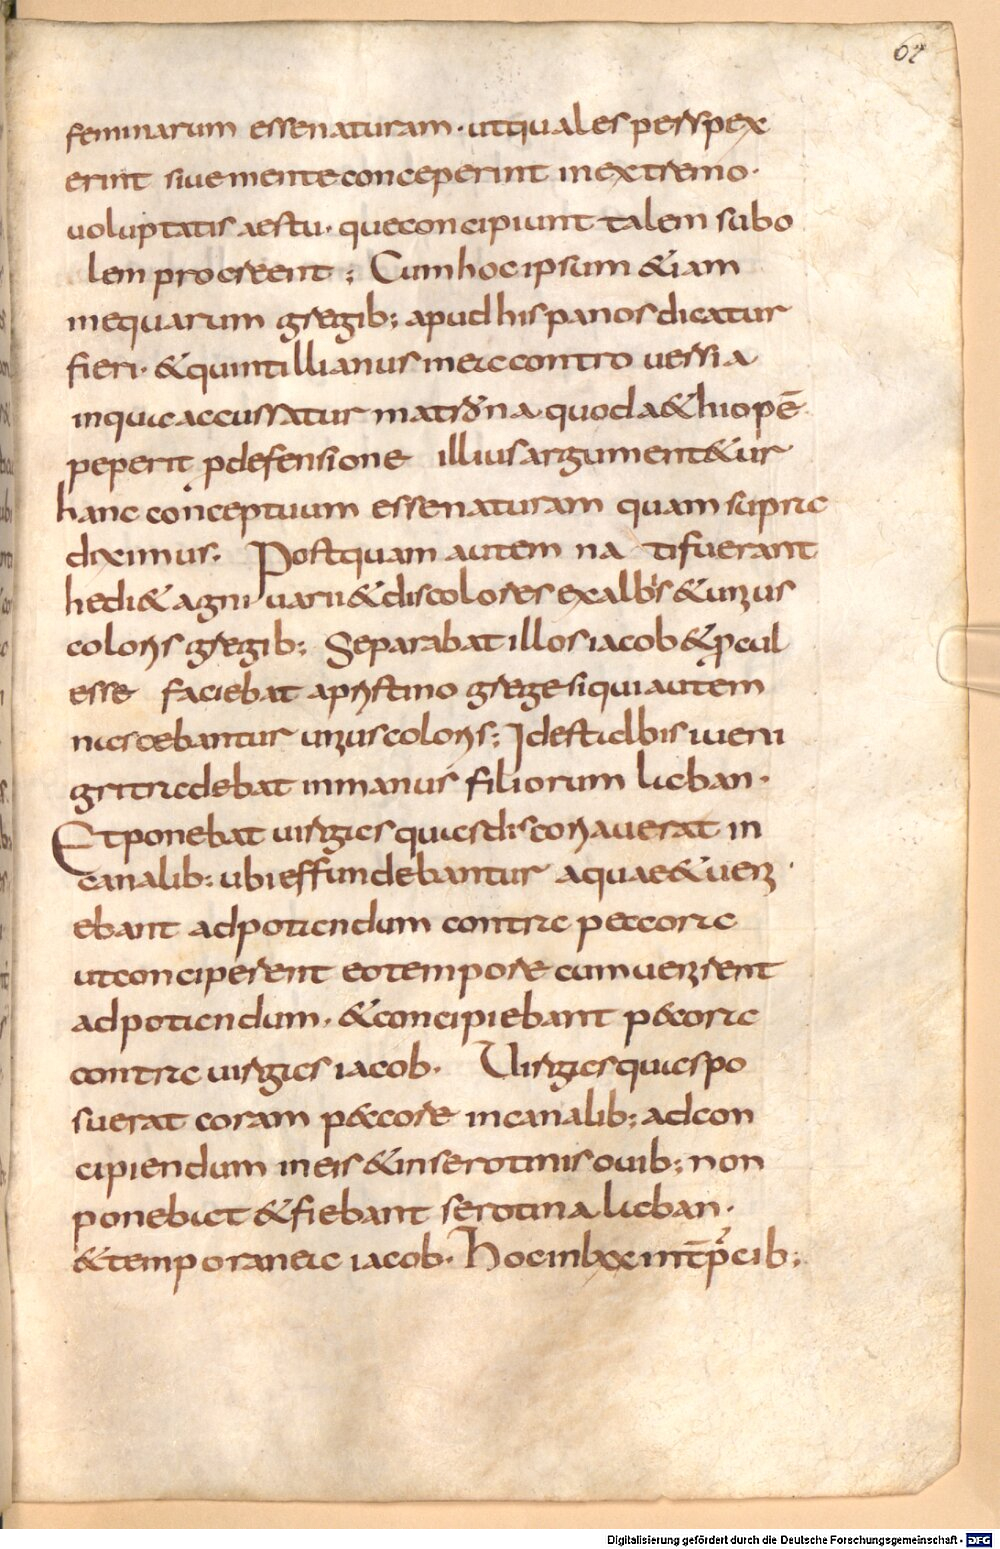 62
feminarum esse naturam· ut quales perspex
erint siue mente conceperint in extremo·
uoluptatis aestu· que concipiunt talem subo
lem procreent ; Cum hoc ipsum &iam
in equarum gregib; apud hispanos dicatur
fieri· & quintillianus in ea controuersia
in qua accussatur matrona quod aethiopē
peperit p defensione illius argument&ur
hanc conceptuum esse naturam quam supra
diximus· Postquam autem na ti fuerant
hedi & agni uarii & discolores ex albis & unius
coloris gregib; Separabat illos iacob & procul
esse faciebat a pristino grege si qui autem
nascebantur unius coloris; Idest albi siue ni
gri tradebat in manus filiorum laban·
Et ponebat uirgas quas discoriauerat in
canalib; ubi effundebantur aquae & ueni
ebant ad potiendum contra peccora
ut conciperent eo tempore cum uenirent
ad potiendum· & concipiebant p&cora
contra uirgas iacob· Uirgas quas po
suerat coram p&core in canalib; ad con
cipiendum in eis & in serotinis ouib; non
ponebat & fiebant serotina laban·
& temporanea iacob· Hoc in lxx int̄p̄cib;
Digitalisierung gefördert durch die Deutsche Forschungsgemeinschaft - DFG